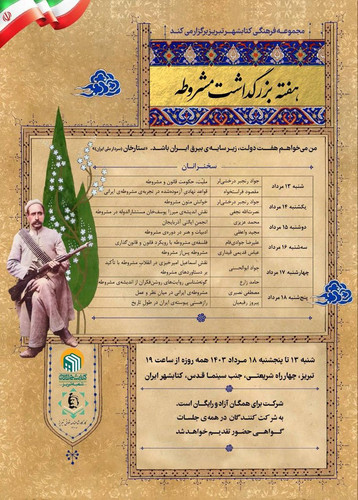 مجموعه فرهنگی کتابشهر تبریز برگزار می کند
هفته بزرگداشت مشروطه
من می‌خواهم هفت دولت، زیر سایه‌ی بیرق ایران باشد. «ستارخان (سردار ملی ایران)»
سخنرانان
شنبه ۱۳ مرداد
جواد رنجبر درخشی‌لر
مثلث حکومت قانون و مشروطه
مقصود فراستخواه
قواعد نهادی آزموده‌شده در تجربه‌ی مشروطه‌ی ایرانی
یکشنبه ۱۴ مرداد
جواد رنجبر درخشی‌لر
خوانش متون مشروطه
نصرت‌الله نجفی
نقش اندیشه‌ی میرزا یوسف‌خان مستشارالدوله در مشروطه
دوشنبه ۱۵ مرداد
محمد عزیزی
انجمن ایالتی آذربایجان
مجید واعظی
ادبیات و هنر در دوره‌ی مشروطه
سه‌شنبه ۱۶ مرداد
علیرضا جوادی‌فام
فلسفه‌ی مشروطه با رویکرد قانون و قانون‌گذاری
عباس قدیمی قیداری
مشروطه پس‌از مشروطه
چهارشنبه ۱۷ مرداد
جواد ابوالحسنی
نقش اسماعیل امیرخیزی در انقلاب مشروطه با تأکید بر دستاوردهای مشروطه
حامد زارع
گونه‌شناسی روایت‌های روشن‌فکران از اندیشه‌ی مشروطه
پنج‌شنبه ۱۸ مرداد
مصطفی نصیری
مشروطه‌ی ایرانی در میان نظر و عمل
پیروز رفیعیان
رازهستی پیوسته‌ی ایران در طول تاریخ
شنبه ۱۳ تا پنجشنبه ۱۸ مرداد ۱۴۰۳ همه روزه از ساعت ۱۹
تبریز، چهارراه شریعتی، جنب سینما قدس، کتابشهر ایران
شرکت برای همگان آزاد و رایگان است.
به شرکت کنندگان در همه‌ی جلسات
گواهی حضور تقدیم خواهد شد